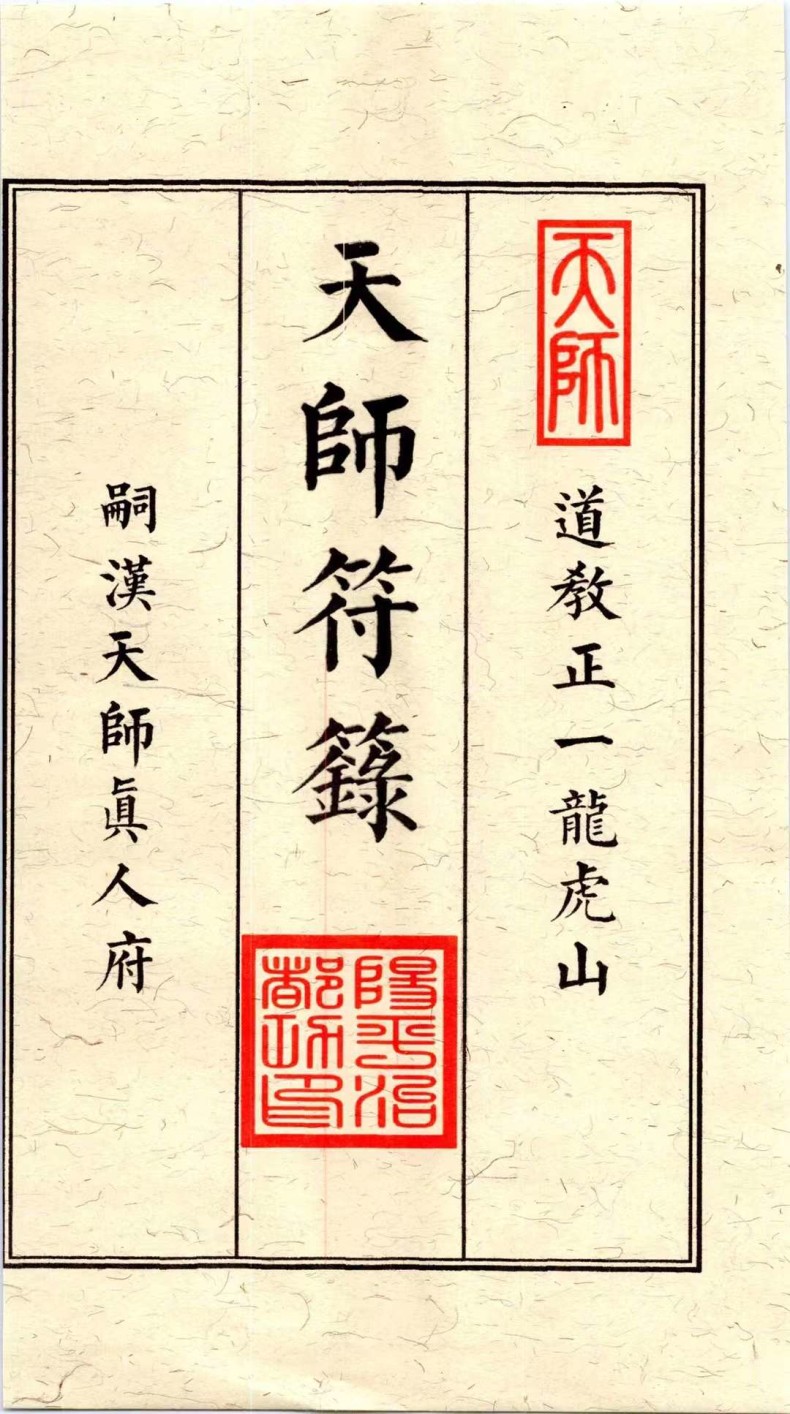 天師
道教正一龍虎山
天師符籙
陽平治
都功印
嗣漢天師眞人府